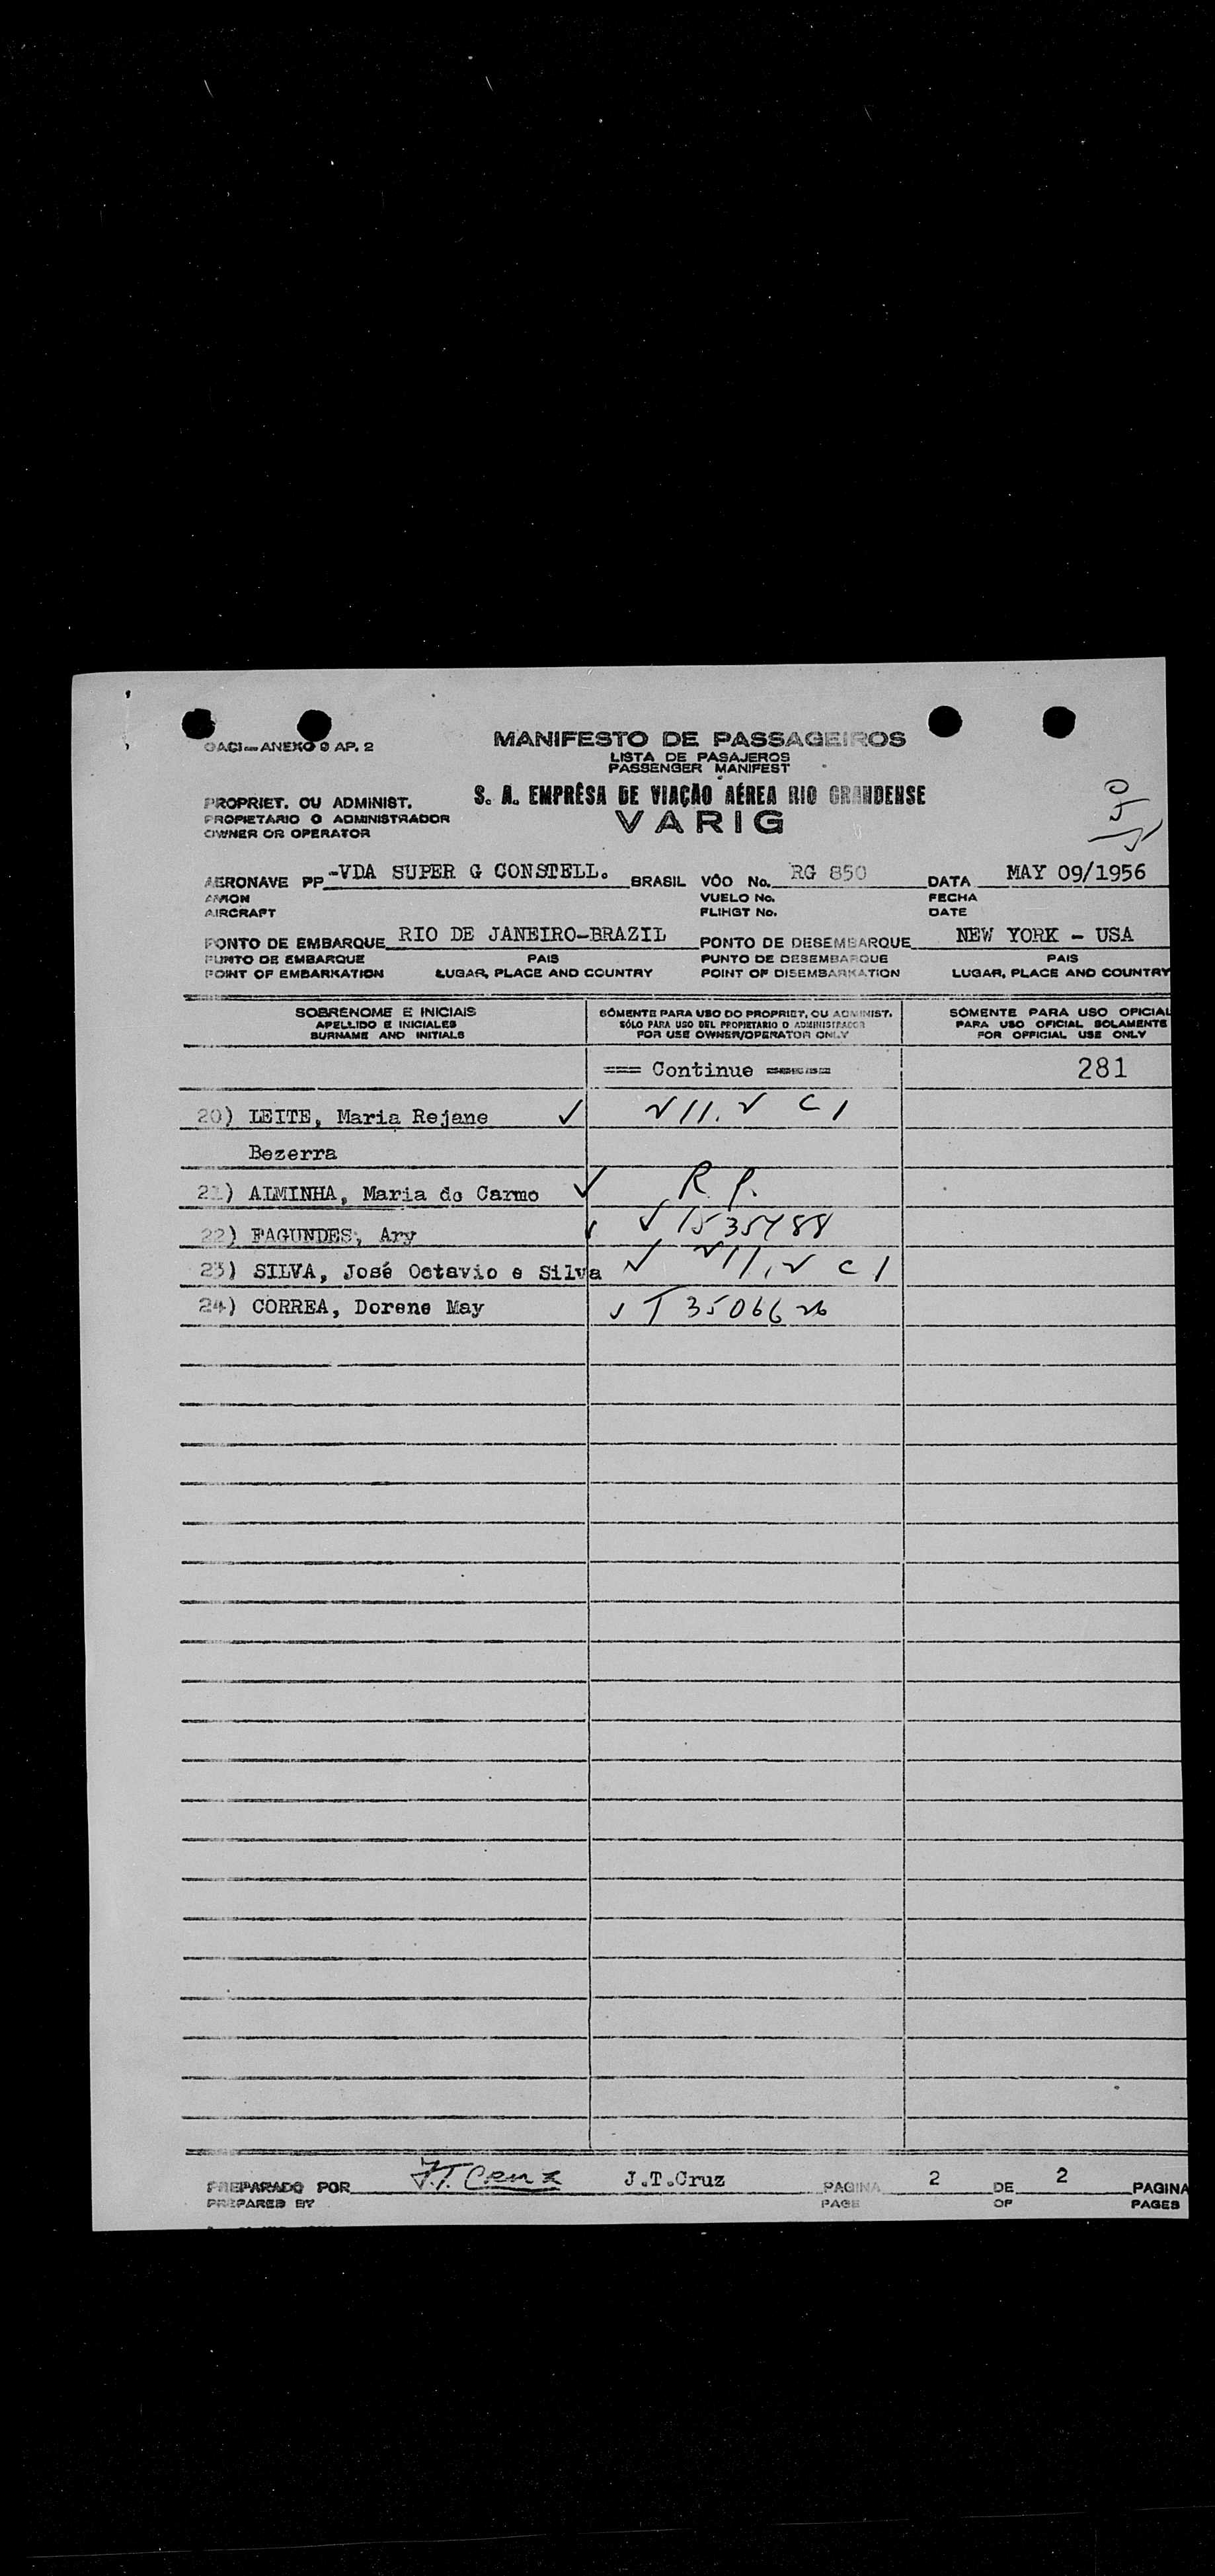 OACI — ANEXO 9 AP. 2
MANIFESTO DE PASSAGEIROS
LISTA DE PASAJEROS
PASSENGER MANIFEST
S. A. EMPRÊSA DE VIAÇÃO AÉREA RIO GRANDENSE
VARIG
PROPRIET. OU ADMINIST.
PROPIETARIO O ADMINISTRADOR
OWNER OR OPERATOR
AERONAVE PP -VDA SUPER G CONSTELL. BRASIL VÔO No. RG 850 DATA MAY 09/1956
AVION VUELO No. FECHA
AIRCRAFT FLIHGT No. DATE
PONTO DE EMBARQUE RIO DE JANEIRO-BRAZIL PONTO DE DESEMBARQUE NEW YORK - USA
PUNTO DE EMBARQUE PAIS PUNTO DE DESEMBARQUE PAIS
POINT OF EMBARKATION LUGAR, PLACE AND COUNTRY POINT OF DISEMBARKATION LUGAR, PLACE AND COUNTRY
SOBRENOME E INICIAIS SÓMENTE PARA USO DO PROPRIET. OU ADMINIST. SÓMENTE PARA USO OFICIAL
APELLIDO E INICIALES SÓLO PARA USO DEL PROPIETARIO O ADMINISTRADOR PARA USO OFICIAL SOLAMENTE
SURNAME AND INITIALS FOR USE OWNER/OPERATOR ONLY FOR OFFICIAL USE ONLY
=== Continue ===== 281
20) LEITE, Maria Rejane ✓ C 1
Bezerra
21) ALMINHA, Maria do Carmo ✓ R.P.
22) FAGUNDES, Ary ✓ ✓ 1535488
23) SILVA, José Octavio e Silva ✓ C 1
24) CORREA, Dorene May ✓ T 3506626
PREPARADO POR J.T. Cruz J.T.Cruz PAGINA 2 DE 2 PAGINA
PREPARED BY PAGE OF PAGES